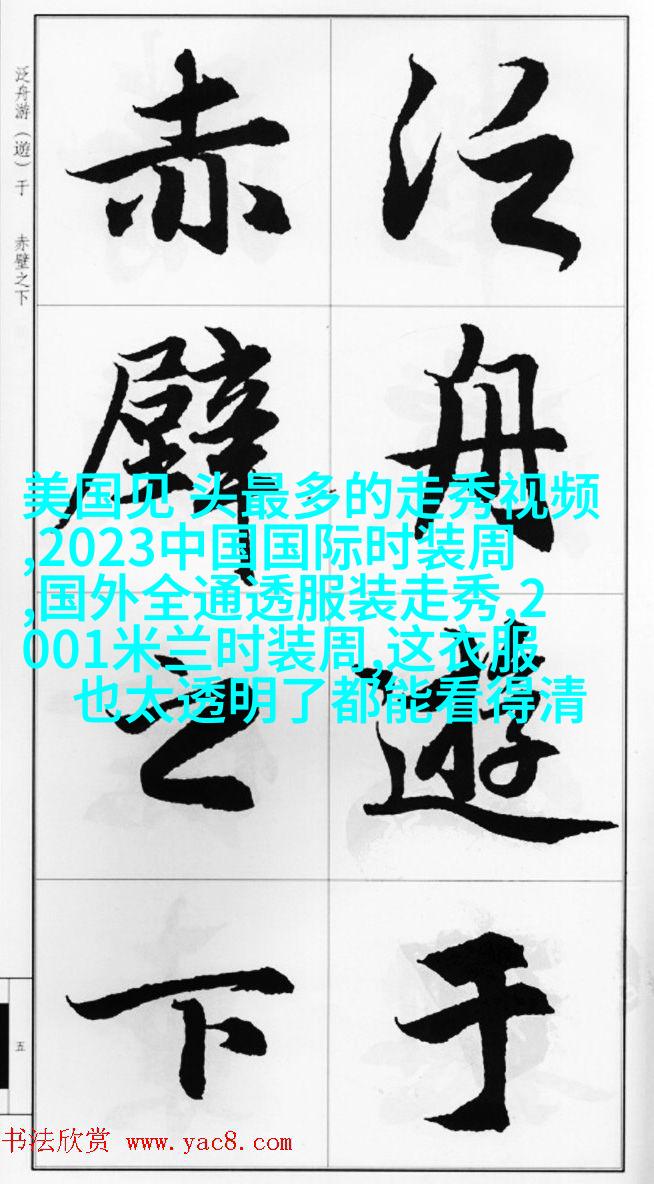 泛舟游（遊）于　赤壁之下
泛舟遊于
赤壁之下
美国见 头最多的走秀视频
,2023中国国际时装周
,国外全通透服装走秀,2
001米兰时装周,这衣服
也太透明了都能看得清
五
书法欣赏 www.yac8.com